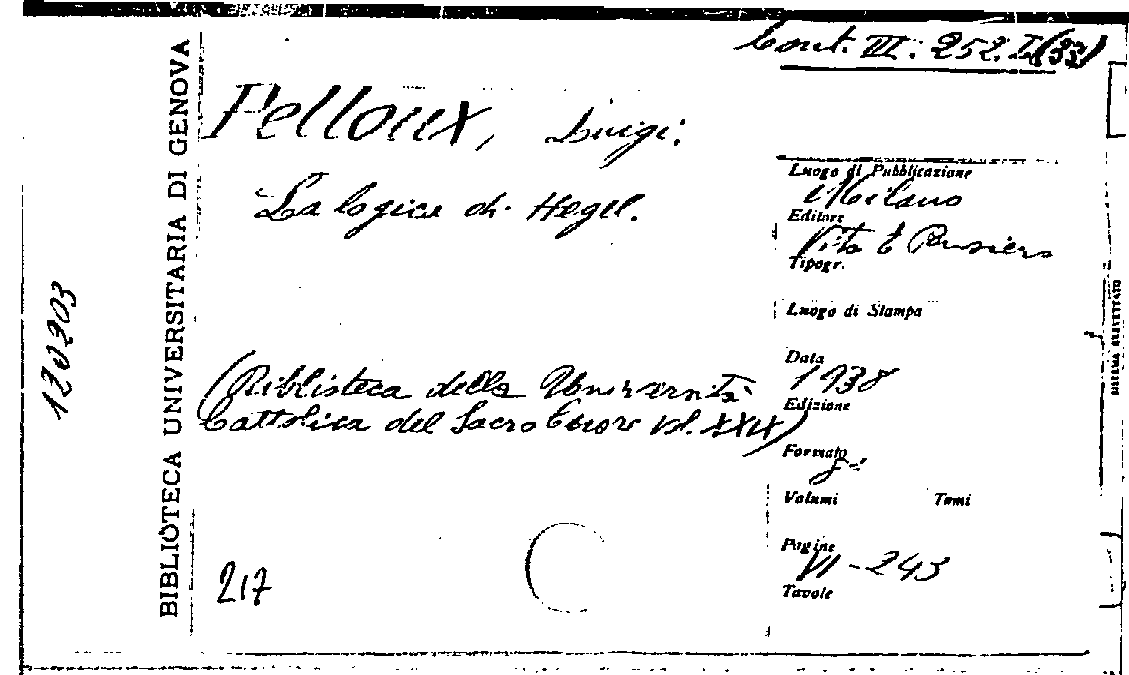 Cont. III. 252. I(33)
Pelloux, Luigi:
La logica di Hegel.
(Biblioteca della Università
Cattolica del Sacro Cuore vol. XXIX)
217
BIBLIOTECA UNIVERSITARIA DI GENOVA
120303
Luogo di Pubblicazione
Milano
Editore
Vita e Pensiero
Tipogr.
Luogo di Stampa
Data
1938
Edizione
Formato
8°
Volumi Tomi
Pagine
VI-243
Tavole
SISTEMA BREVETTATO